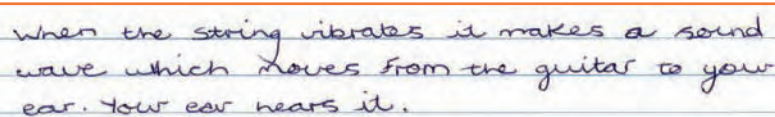 When the string vibrates it makes a sound
wave which moves from the guitar to your
ear. Your ear hears it.